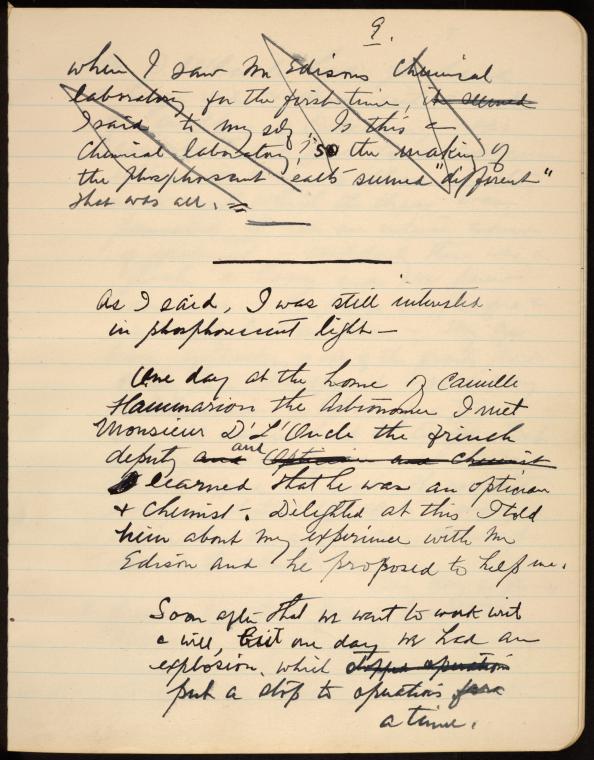 9.
when I saw Mr Edisons chemical
laboratory for the first time, it seemed
I said to my self, Is this a
chemical laboratory, so the making of
the phosphorescent salts seemed "different"
that was all.
As I said, I was still interested
in phosphorescent light—
One day at the home of Camille
Flammarion the Astronomer I met
Monsieur D'L'Oncle the french
deputy and and Optician and chemist
I learned that he was an optician
& chemist-. Delighted at this I told
him about my experience with Mr
Edison and he proposed to help me.
Soon after that we went to work with
a will, but one day we had an
explosion, which stopped operations
put a stop to operations for a
a time.